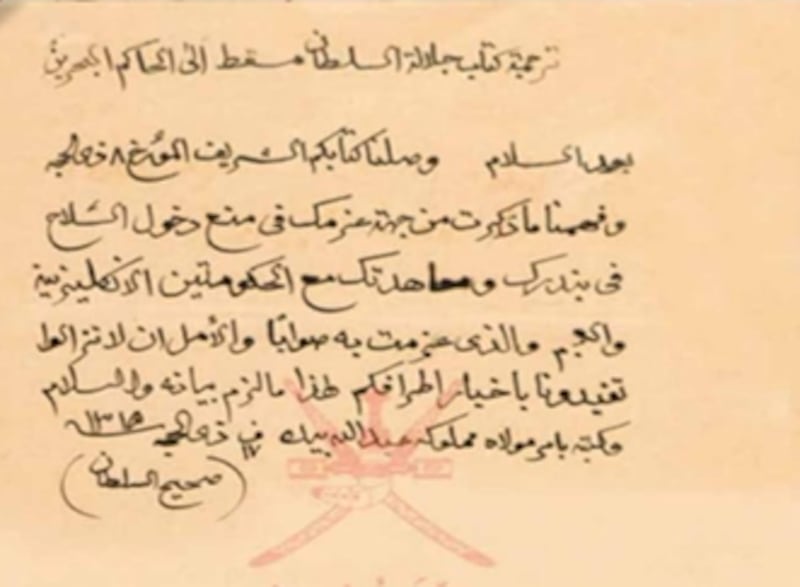 ترجمة كتاب جلالة السلطان مسقط الى الحاكم البحرين
بعد السلام وصلنا كتابكم الشريف المؤرخ ٨ ذي الحجه
وفهمنا ما ذكرت من جهة عزمك في منع دخول السلاح
في بندرك ومعاهدتك مع الحكومتين الانكليزية
والعجم والذي عزمت به صوابا والأمل ان لا تزالوا
تفيدونا باخبار اطرافكم هذا ما لزم بيانه والسلام
وكتبه بامر مولاه مملوكه عبدالله بيك في ١٧ ذي الحجه ١٣١٥
(صحيح السلطان)